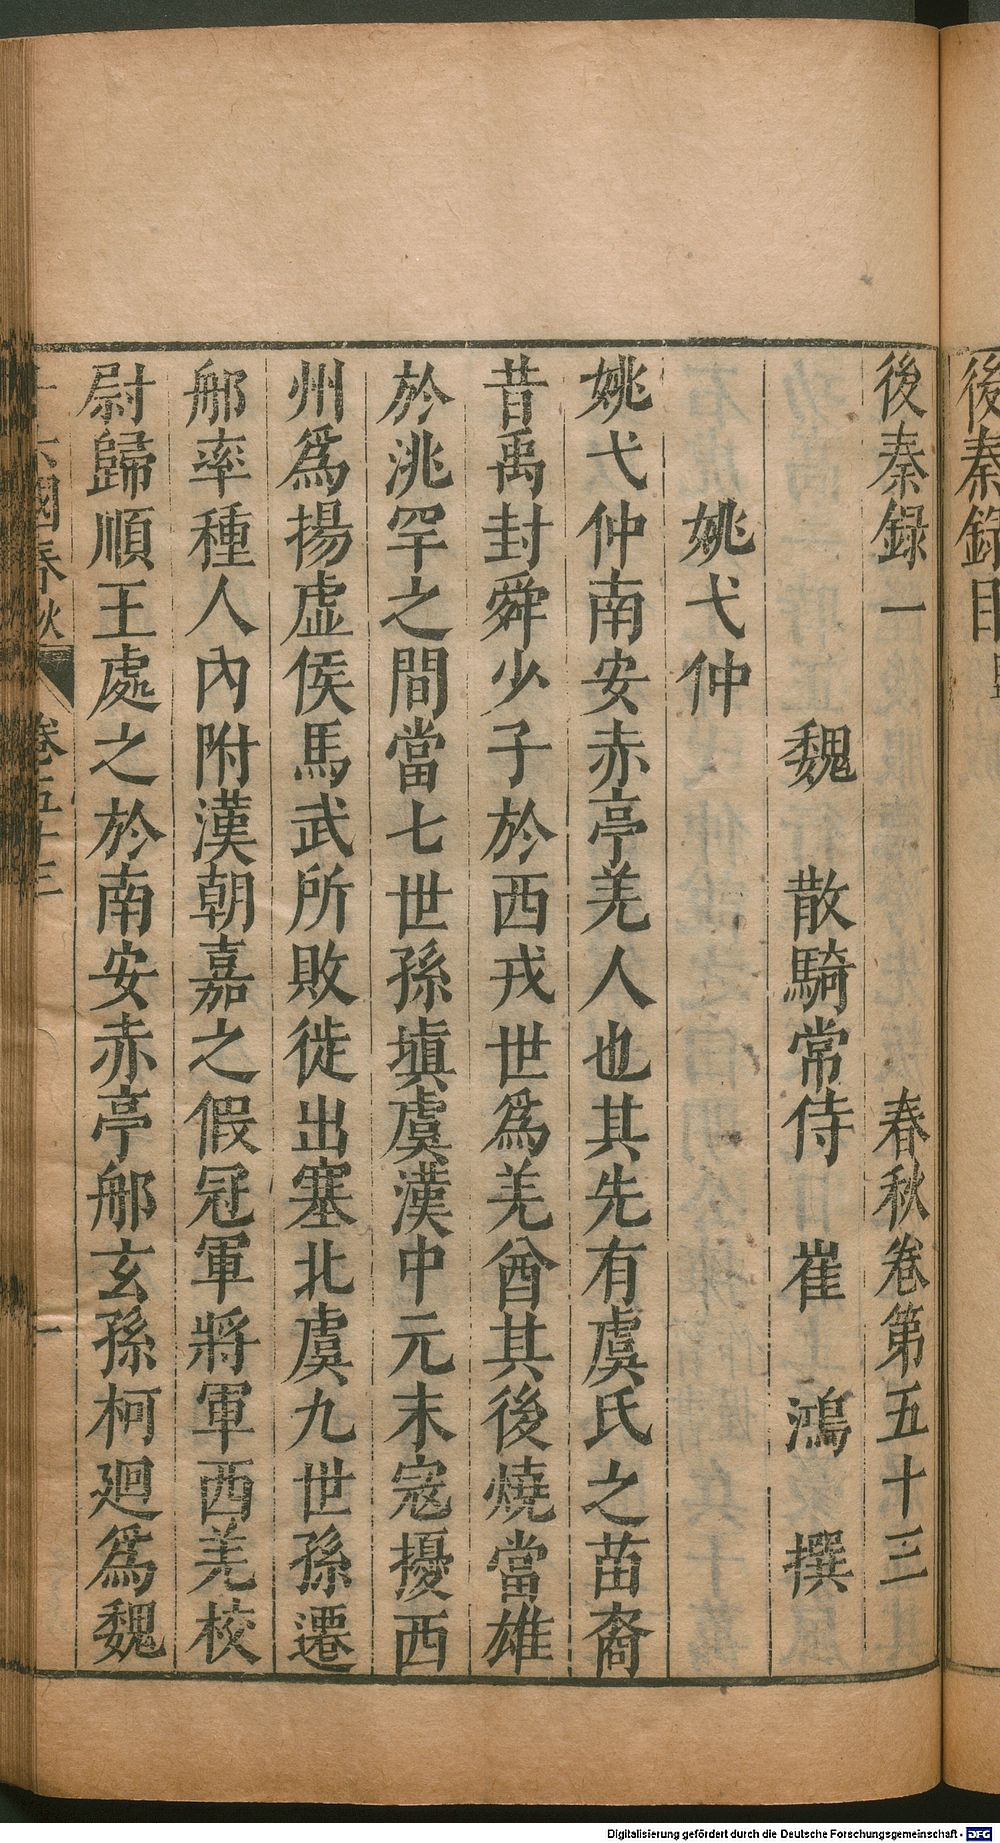 後秦錄
後秦録一　春秋卷第五十三
魏　散騎常侍　崔　鴻　撰
姚弋仲
姚弋仲南安赤亭羌人也其先有虞氏之苗裔
昔禹封舜少子於西戎世爲羌酋其後燒當雄
於洮罕之間當七世孫塡虞漢中元末寇擾西
州爲揚虛侯馬武所敗徙出塞北虞九世孫遷
郍率種人內附漢朝嘉之假冠軍將軍西羌校
尉歸順王處之於南安赤亭郍玄孫柯迴爲魏
十六國春秋　卷五十三　一
Digitalisierung gefördert durch die Deutsche Forschungsgemeinschaft - DFG